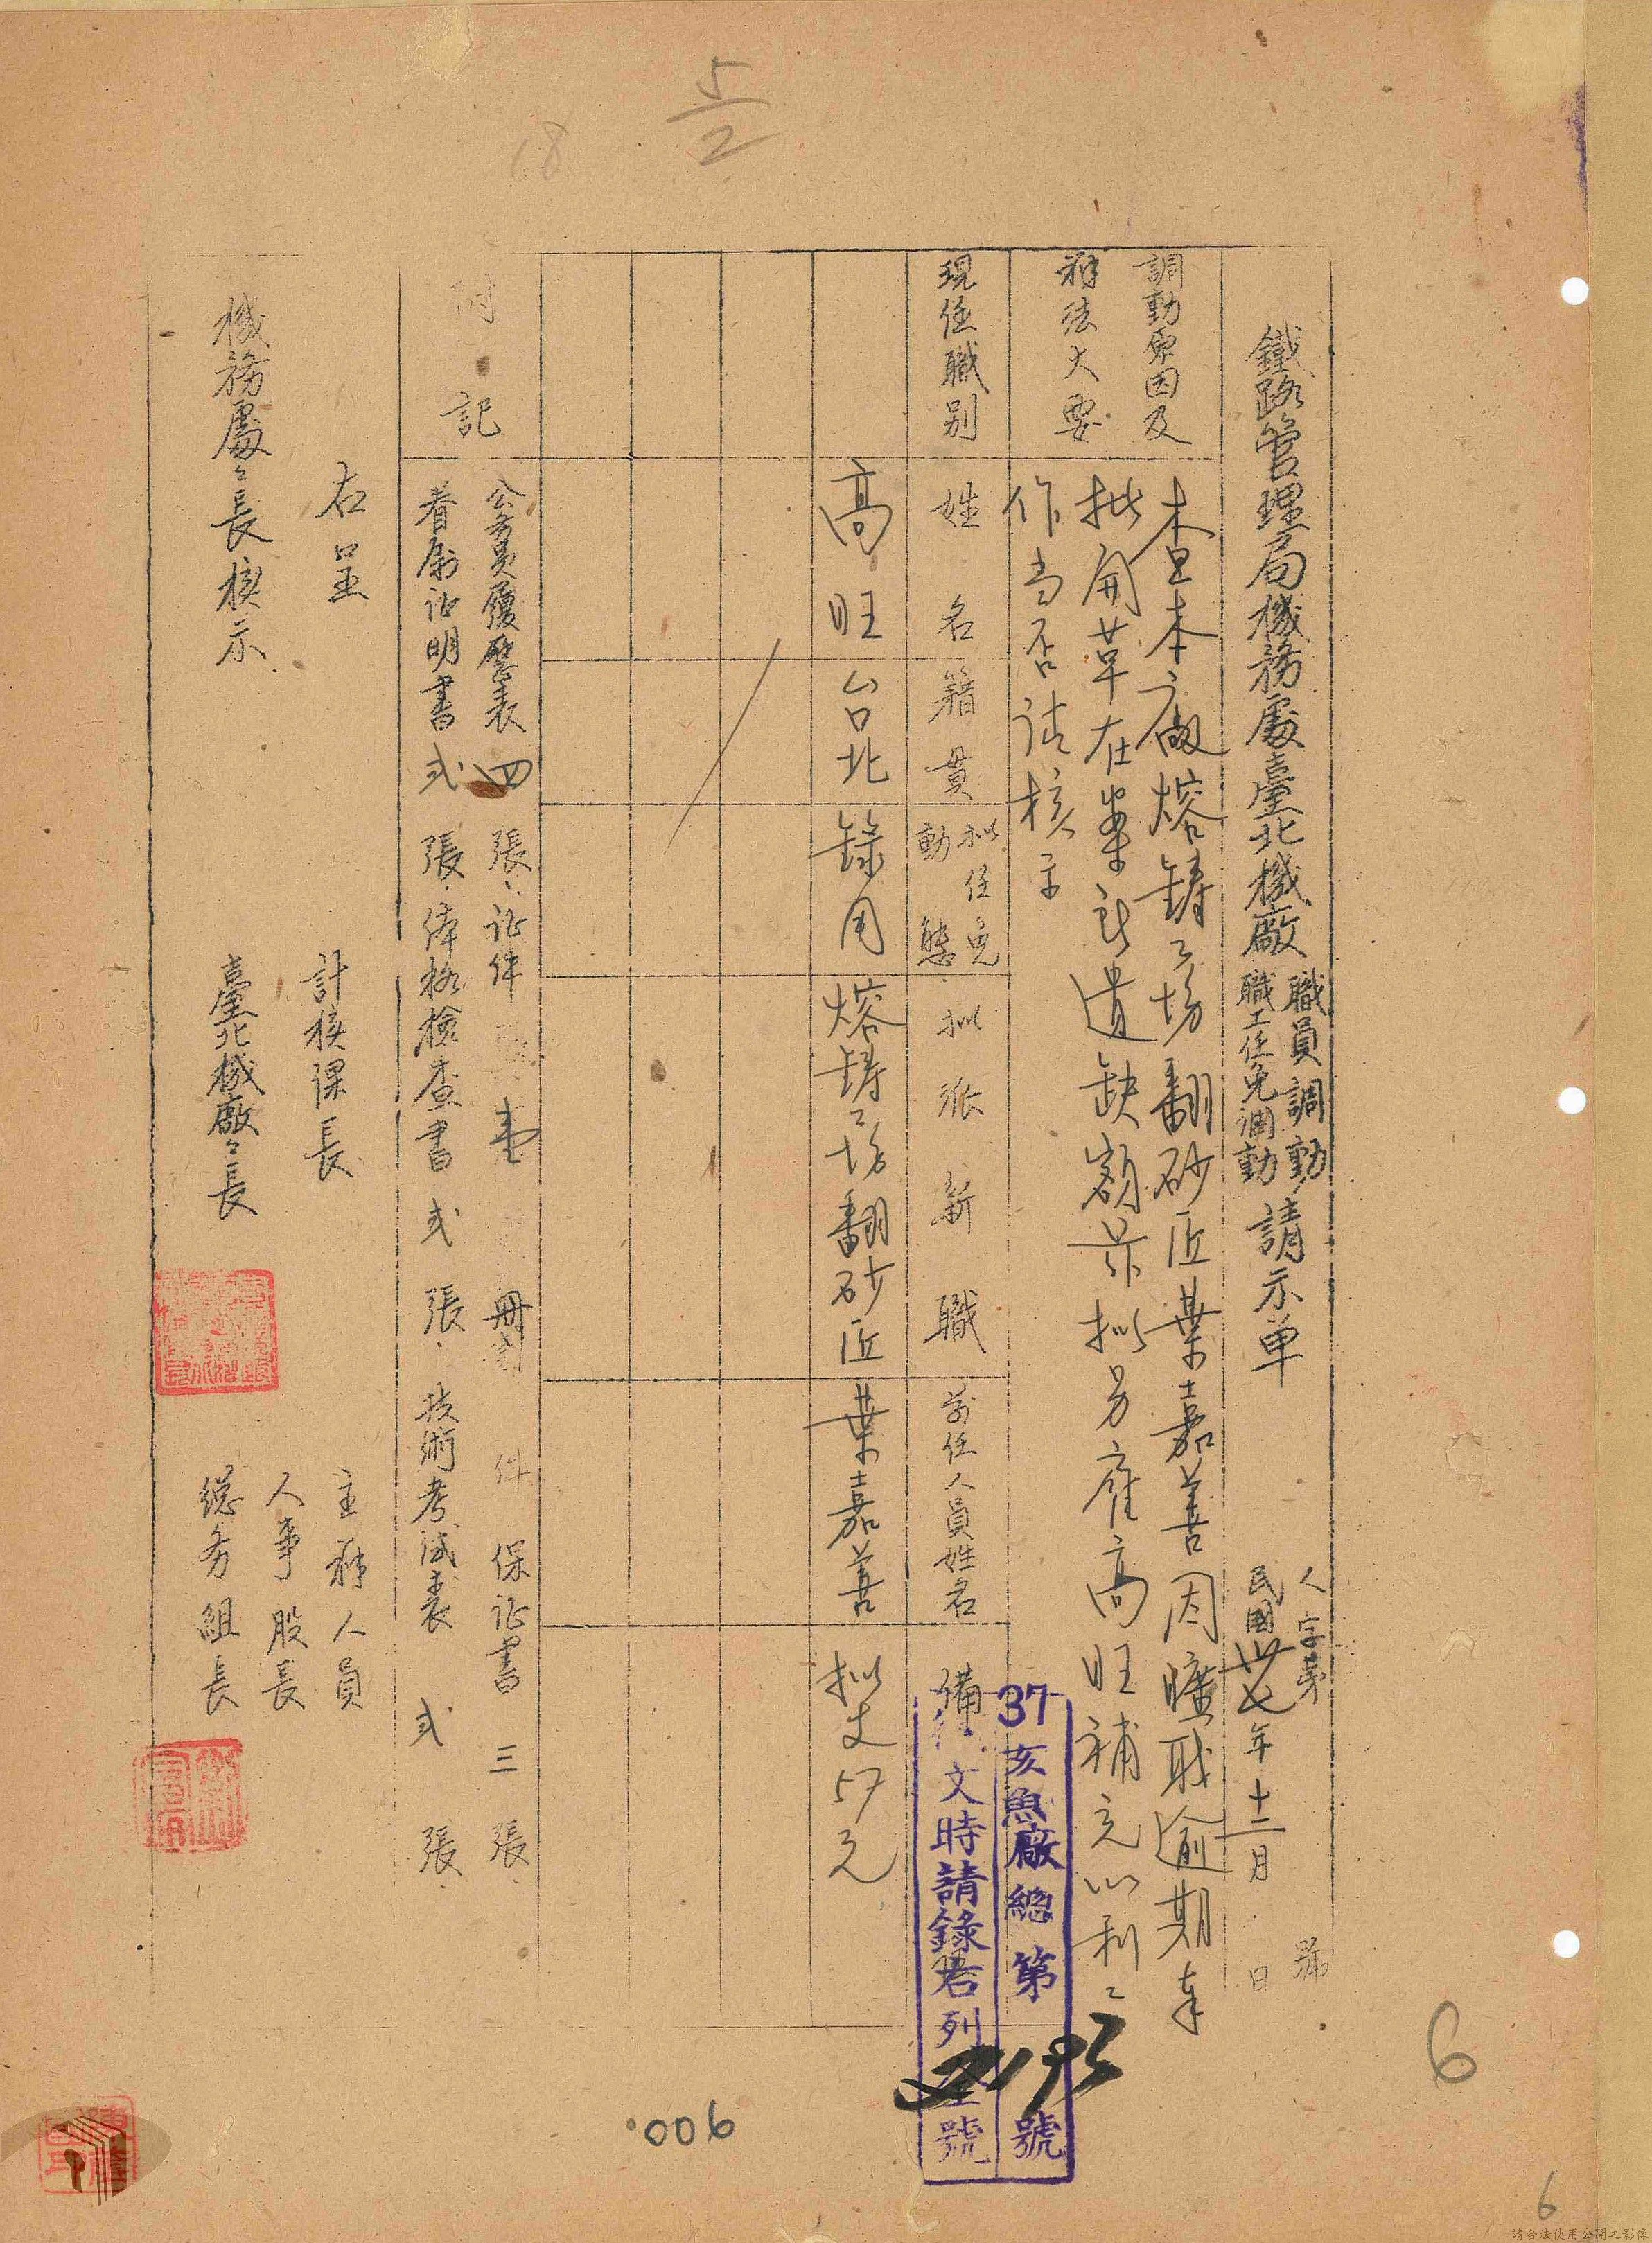 鐵路管理局機務處臺北機廠
職員調動
職工任免調動
請示单
人字第 號
民國卅七年十二月 日
調動原因及
辦法大要
查本廠熔鋳工場翻砂匠葉嘉善因曠职逾期奉
批開革在案所遺缺額茲拟另雇高旺補充以利工
作当否請核示
現任職别
姓名
籍貫
拟任免
動態
拟派新職
前任人員姓名
備
高旺
台北
錄用
熔鋳工場翻砂匠
葉嘉善
拟支57元
附記
公务員履歷表四張、证件 壹 冊 件 保证書三張、
眷屬证明書弍張、体格檢查書弍張、技術考試表弍張、
右呈
機務處々長核示
計核課長
臺北機廠々長
主辦人員
人事股長
総务組長
37亥魚廠總第 號
文時請錄右列 號
5/2
18
006
6
6
請合法使用公開之影像